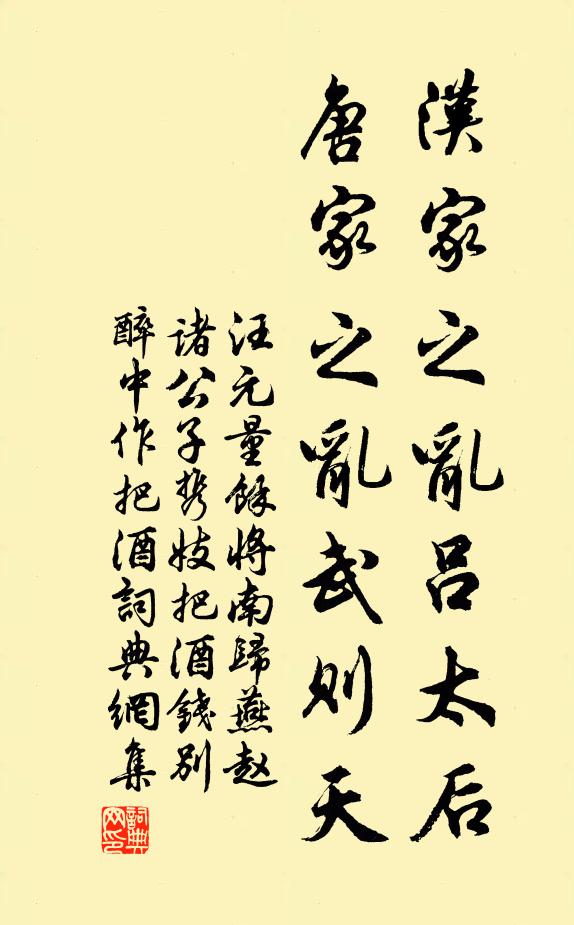 漢家之亂呂太后
唐家之亂武則天
汪元量餘將南歸燕赵
諸公子携妓把酒錢別
醉中作把酒詞典網集
詞典網印